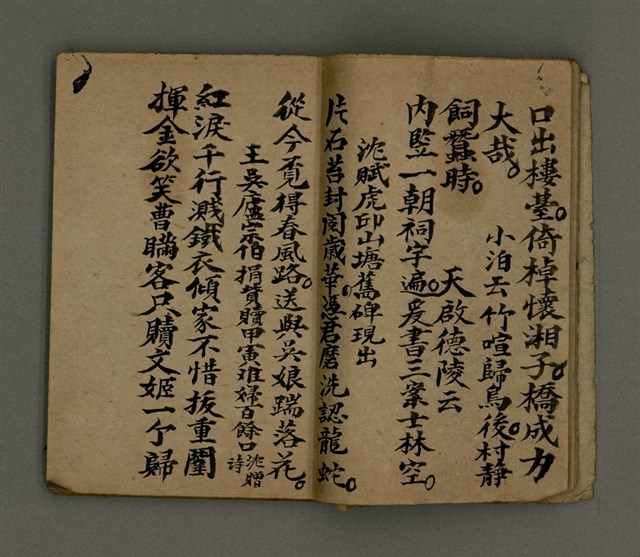 口出樓臺。倚棹懷湘子橋成力
大哉。　小泊云竹喧歸鳥後。村静
飼蠶時。　天啟德陵云
内監一朝祠字遍。爰書三案士林空。
沈賦虎邱山塘舊碑現出
片石苔封閱歲華。憑君磨洗認龍蛇。
從今覓得春風路。送與吳娘踹落花。
王吳廬宗伯捐貲贖甲寅难婦百餘口沈贈詩
紅淚千行濺鐵衣傾家不惜拔重闈
揮金欲笑曹瞞客只贖文姬一个歸